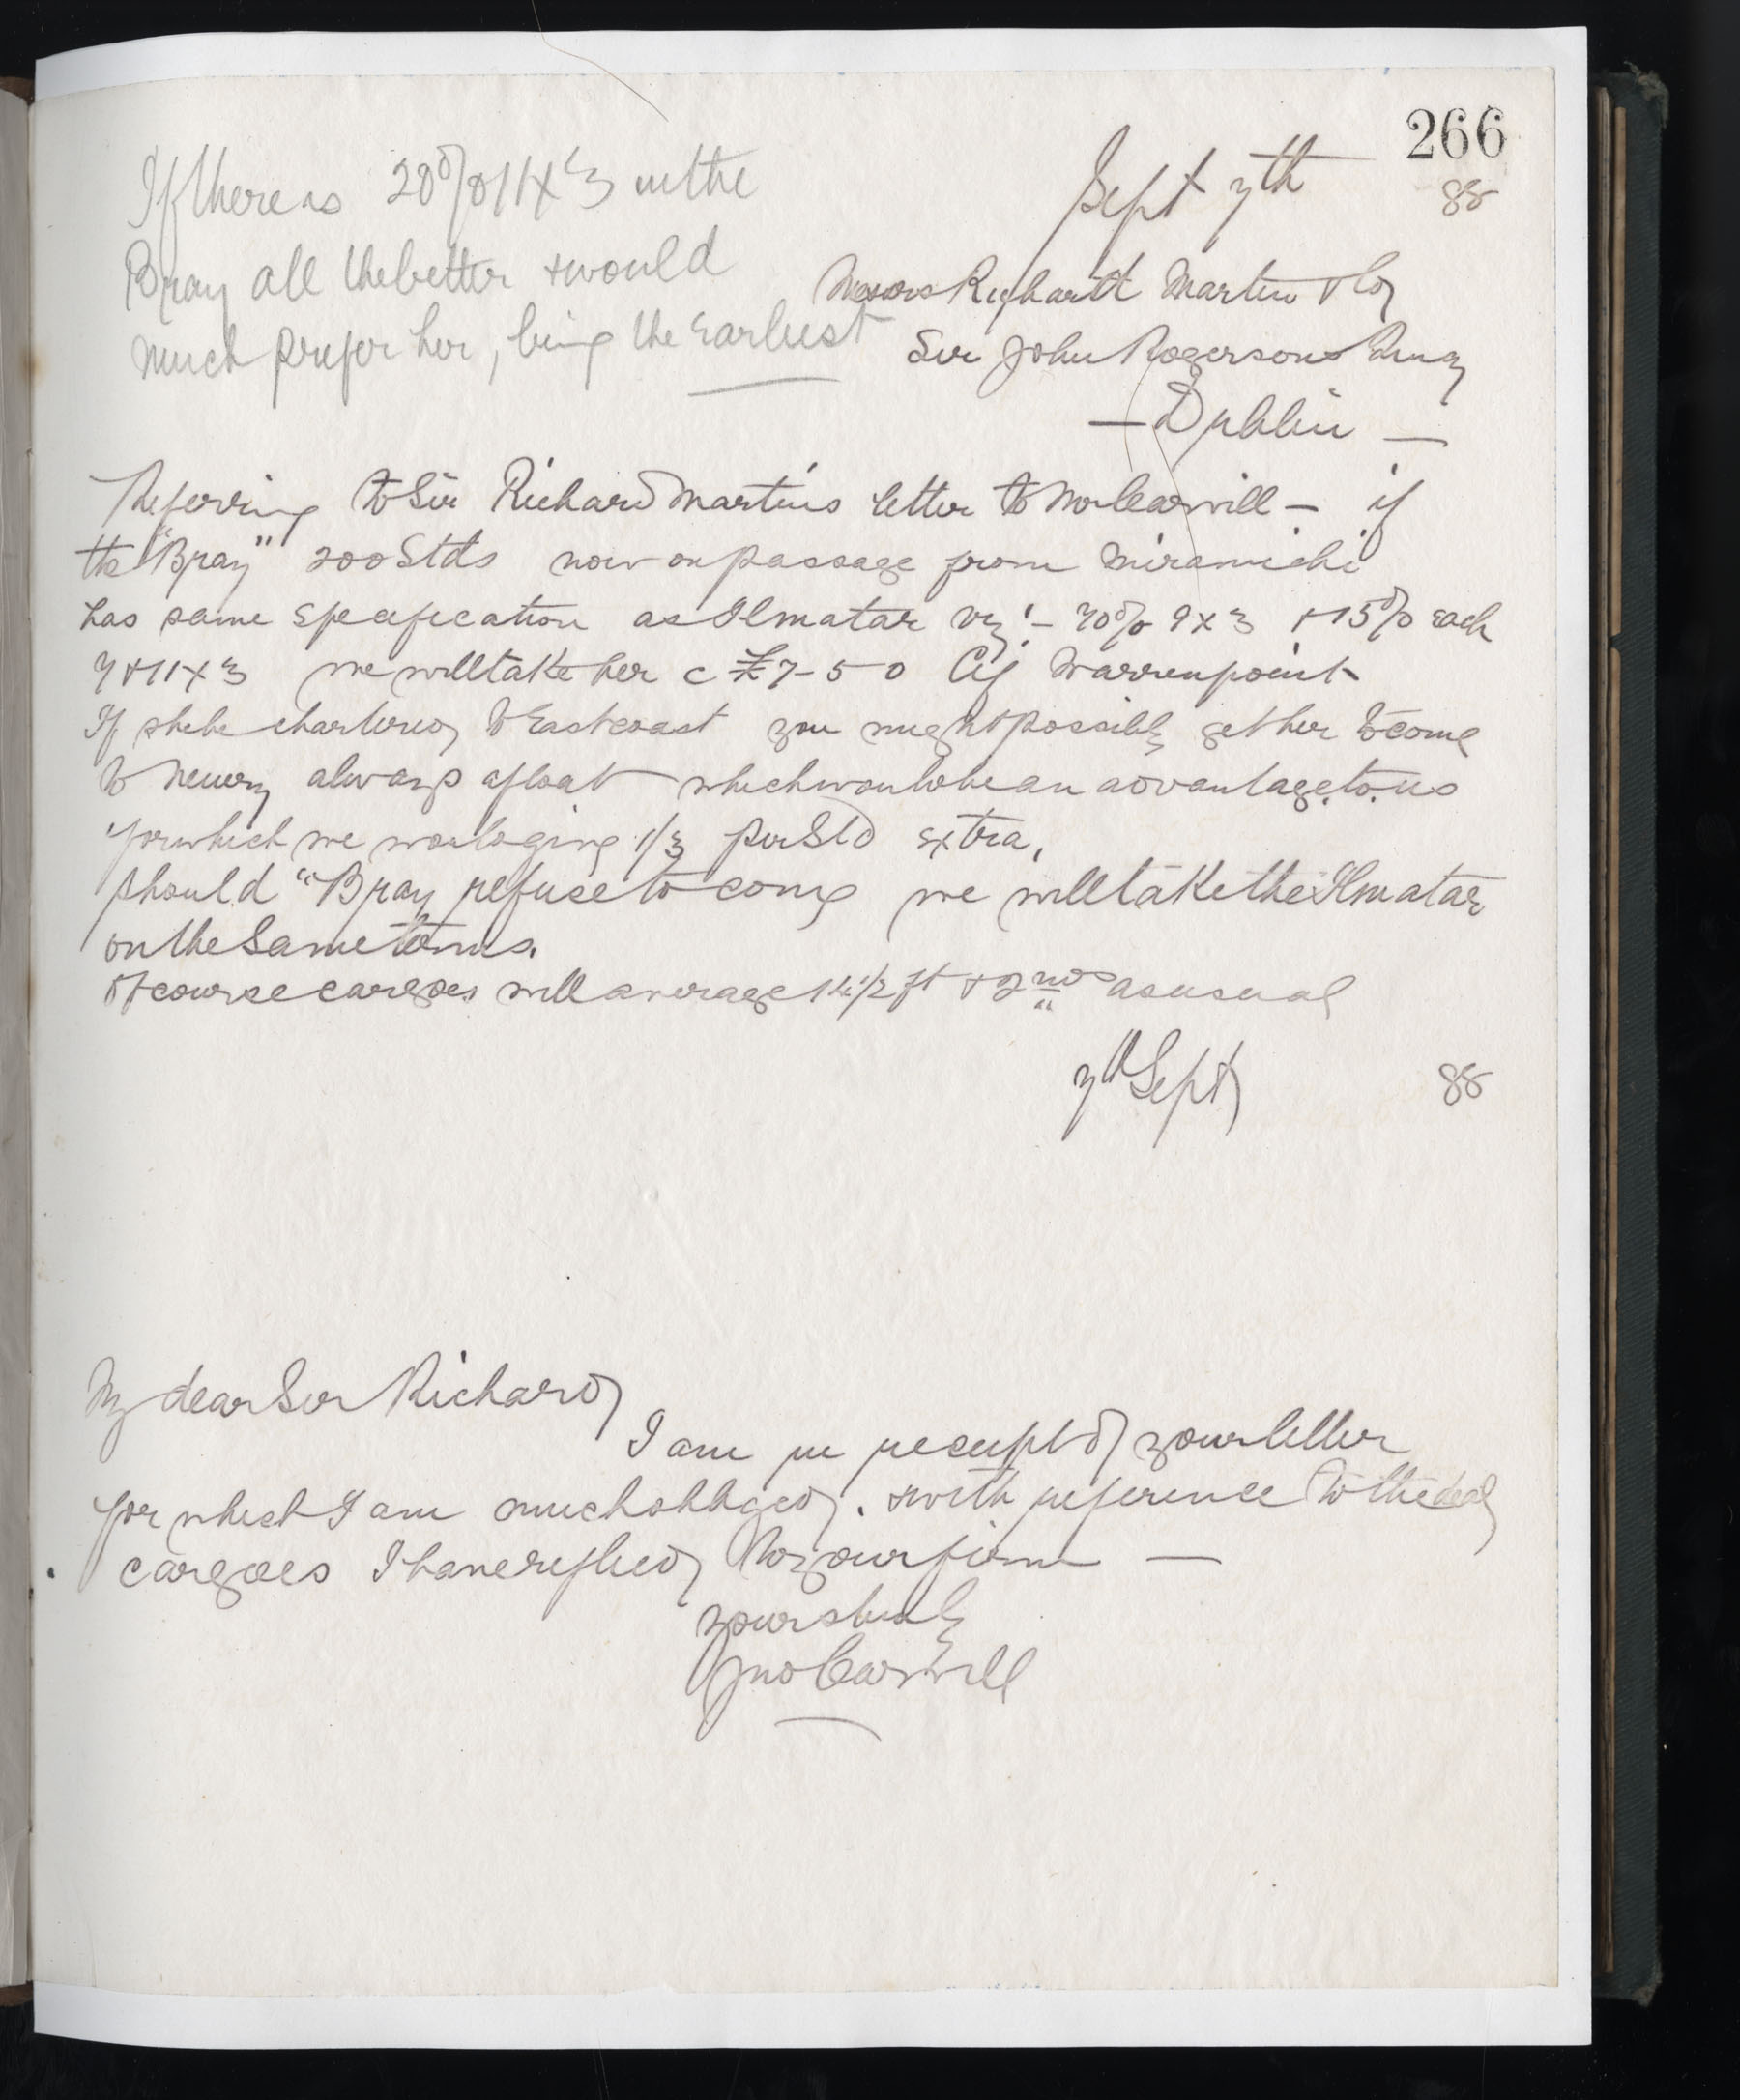 266
Sept 7th 88
If there is 20% 11x3 in the
Bray all the better & would
much prefer her, being the Earliest
Messrs Richard Martin & Co
Sir John Rogersons Quay
— Dublin —
Referring to Sir Richard Martins letter to Mr Carvill — if
the "Bray" 200 Stds now on passage from Miramichi
has same specification as Ilmatar viz:- 70% 9x3 & 15% Each
7 & 11x3 we will take her c £7-5-0 Cif Warrenpoint
If she be chartered to East coast you might possibly get her to come
to Newry always afloat which would be an advantage to us
for which we would give 1/3 per Std extra,
should "Bray refuse to come we will take the Ilmatar
on the same terms.
Of course cargoes will average 14 1/2 ft & 2nds as usual
7th Sept 88
My dear Sir Richard
I am in receipt of your letter
for which I am much obliged. & with reference to the deal
cargoes I have replied to your firm —
yours truly
Jno Carvill